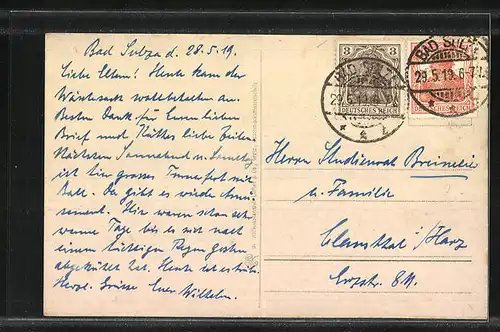 Bad Sulza d. 28.5.19.
Liebe Eltern! Heute kam der
Wäschesack wohlbehalten an.
Besten Dank für Euren lieben
Brief und liebe Zeilen.
Nächsten Sonnabend u. Sonntag
ist hier grosses Turnerfest mit
Ball. Da gibt es wieder
Hier waren schon sehr
warme Tage bis es sich nach
einem tüchtigen Regen gestern
abgekühlt hat. Heute ist es trüb.
Herzl. Grüsse Euer Wilhelm.
3
DEUTSCHES REICH
BAD SULZA
29.5.19. 6-7
DEUTSCHES REICH
Herrn Studienrat
u. Familie
Clausthal / Harz